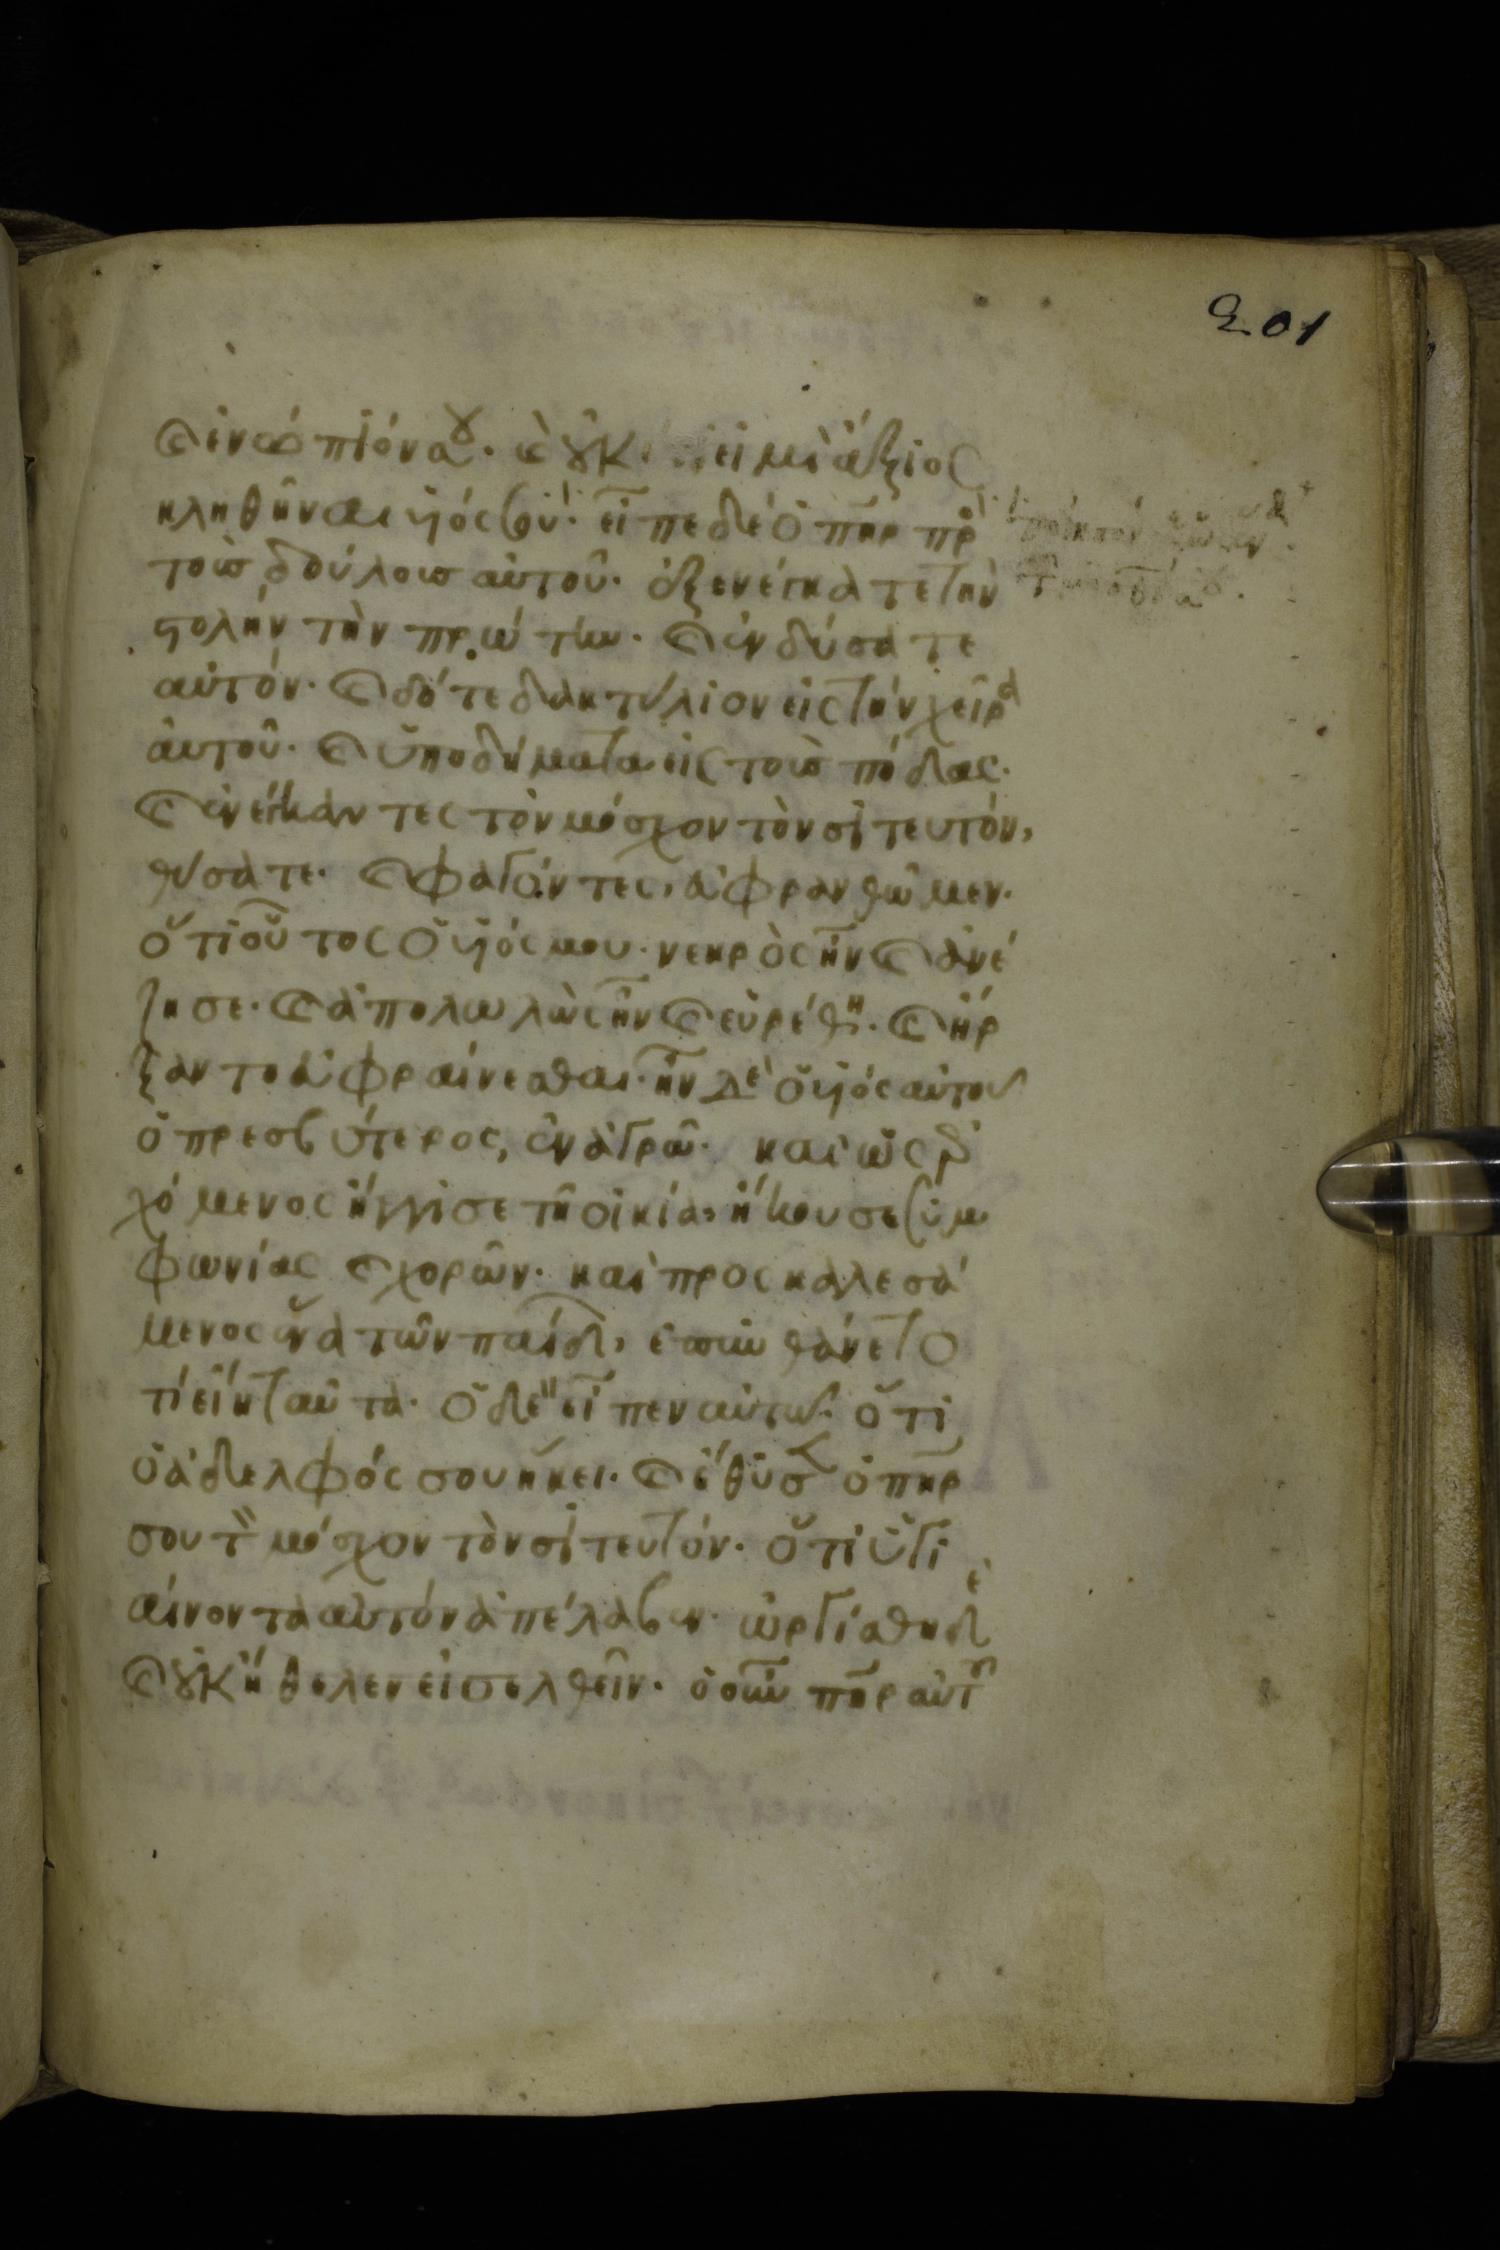 201
καὶ ἐνώπιόν σου. καὶ οὐκ εἰμὶ ἄξιος
κληθῆναι υἱός σου. εἶπε δὲ ὁ πηρ πρὸ
τοὺς δούλους αὐτοῦ. ἐξενέγκατε τὴν
στολὴν τὴν πρώτην. καὶ ἐνδύσατε
αὐτόν. καὶ δότε δακτύλιον εἰς τὴν χεῖρα
αὐτοῦ. καὶ ὑποδήματα εἰς τοὺς πόδας.
καὶ ἐνέγκαντες τὸν μόσχον τὸν σιτευτόν,
θύσατε. καὶ φαγόντες, εὐφρανθῶμεν.
ὅτι οὗτος ὁ υἱός μου. νεκρὸς ἦν καὶ ἀνέ
ζησε. καὶ ἀπολωλὼς ἦν καὶ εὑρέθη. καὶ ἤρ
ξαντο εὐφραίνεσθαι. ἦν δὲ ὁ υἱός αὐτοῦ
ὁ πρεσβύτερος, ἐν ἀγρῶ. καὶ ὡς ἐρ
χόμενος ἤγγισε τῆ οἰκία, ἤκουσε συμ
φωνίας καὶ χορῶν. καὶ προσκαλεσά
μενος ἕνα τῶν παίδ, ἐπυνθάνετο
τί εἴη ταῦτα. ὁ δὲ εἶπεν αὐτῶ. ὅτι
ὁ ἀδελφός σου ἥκει. καὶ ἔθυσεν ὁ πηρ
σου τὸν μόσχον τὸν σιτευτόν. ὅτι ὑγι
αίνοντα αὐτὸν ἀπέλαβεν. ὠργίσθη δὲ
καὶ οὐκ ἤθελεν εἰσελθεῖν. ὁ οὖν πηρ αὐτοῦ